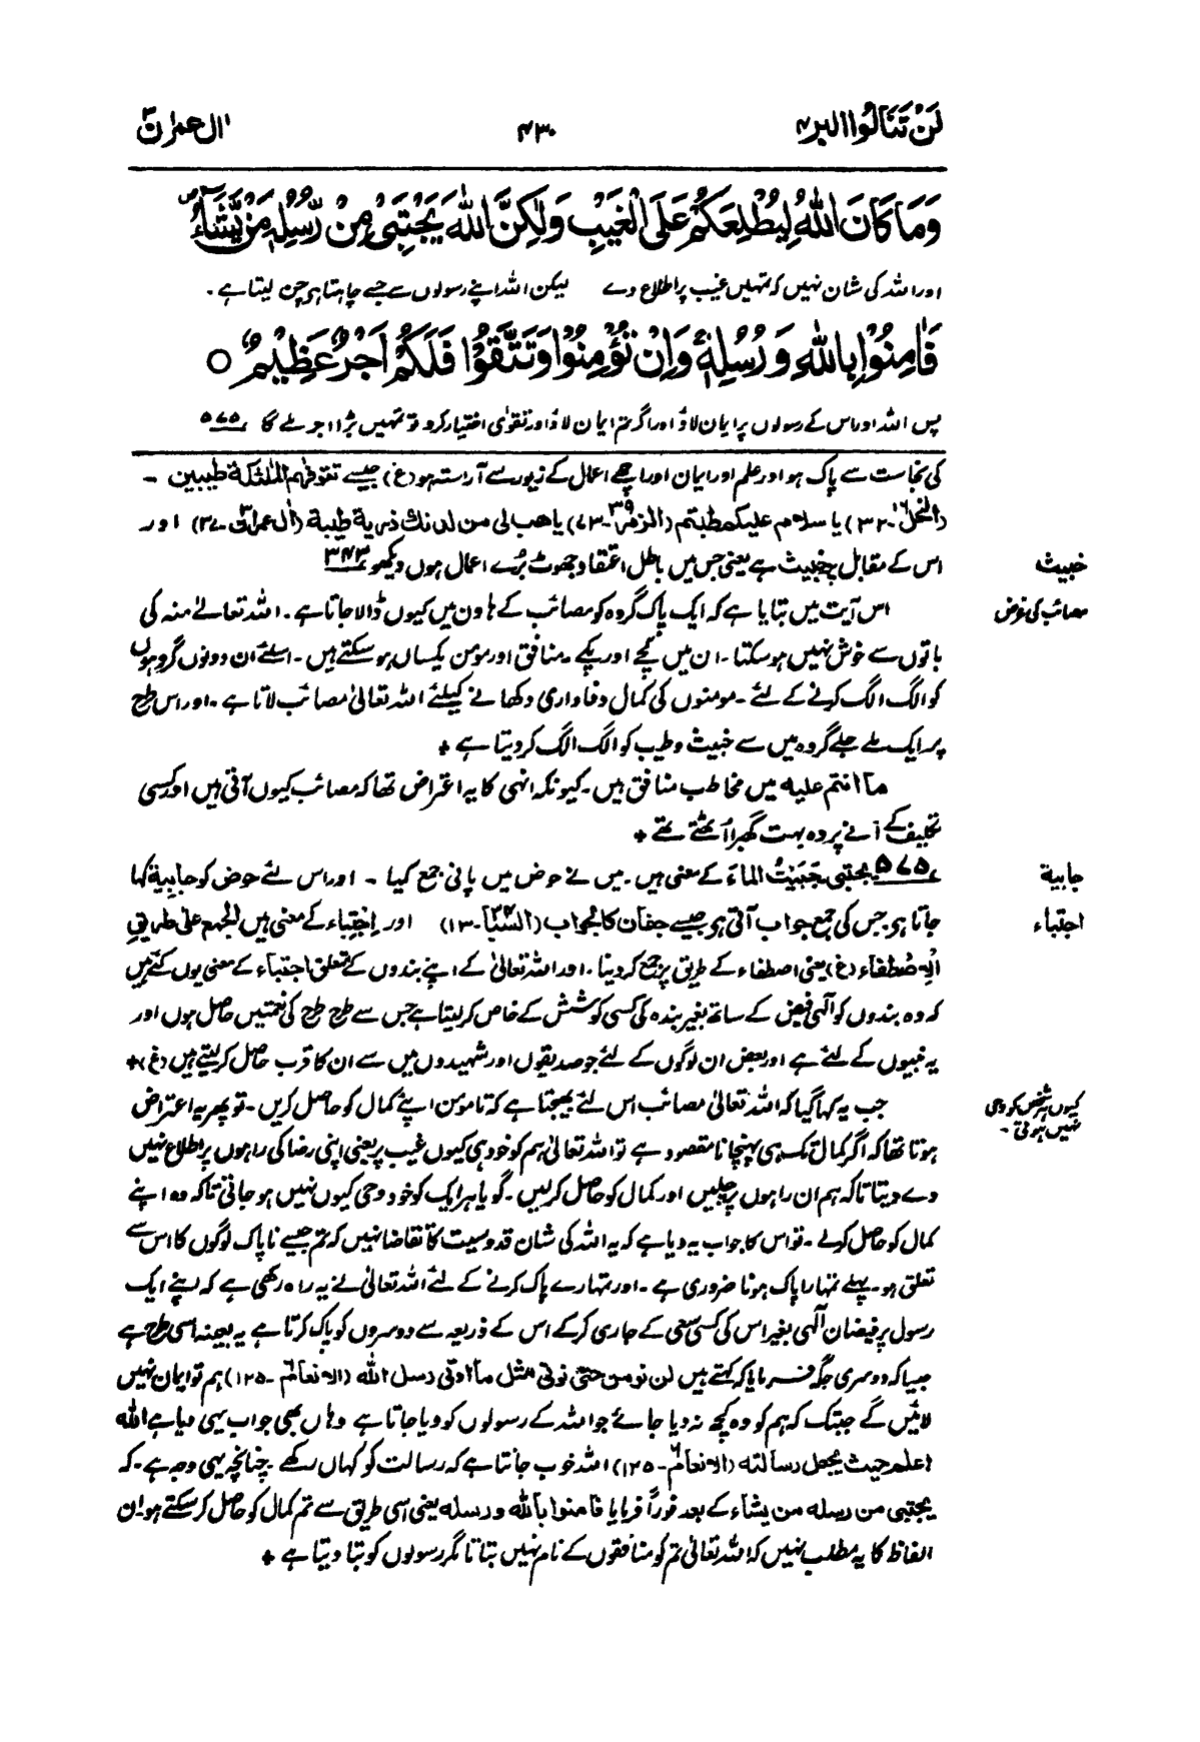 لَنْ تَنَالُوا البر ۴
۴۳۰
اٰل عمرٰن ۳
وَمَا كَانَ اللّٰهُ لِيُطْلِعَكُمْ عَلَى الْغَيْبِ وَلٰكِنَّ اللّٰهَ يَجْتَبِيْ مِنْ رُّسُلِهٖ مَنْ يَّشَآءُ
اور اللہ کی شان نہیں کہ تمہیں غیب پر اطلاع دے لیکن اللہ اپنے رسولوں سے جسے چاہتا ہو چن لیتا ہے ۔
فَاٰمِنُوْا بِاللّٰهِ وَرُسُلِهٖ ۚ وَاِنْ تُؤْمِنُوْا وَتَتَّقُوْا فَلَكُمْ اَجْرٌ عَظِيْمٌ ○
پس اللہ اور اس کے رسولوں پر ایمان لاؤ اور اگر تم ایمان لاؤ اور تقویٰ اختیار کرو تو تمہیں بڑا اجر ملے گا ۵۷۵
کی نجاست سے پاک ہو اور علم اور ایمان اور اچھے اعمال کے زیور سے آراستہ ہو (غ) جیسے تتوفٰهم الملٰئكة طيبين -
(النحل ۱۶-۳۲) یا سلام عليكم طبتم (الزمر ۳۹-۷۳) یا هب لی من لدنك ذرية طيبة (اٰل عمران ۳-۳۷) اور
خبیث
اس کے مقابل پر خبیث ہے یعنی جس میں باطل اعتقاد جھوٹ بُرے اعمال ہوں دیکھو ۳۴۳
مصائب کی غرض
اس آیت میں بتایا ہے کہ ایک پاک گروہ کو مصائب کے ہاون میں کیوں ڈالا جاتا ہے ۔ اللہ تعالےٰ منہ کی
باتوں سے خوش نہیں ہو سکتا ۔ ان میں کچے اور پکے ۔ منافق اور مومن یکساں ہو سکتے ہیں ۔ اسلئے ان دونوں گروہوں
کو الگ الگ کرنے کے لئے ۔ مومنوں کی کمال وفاداری دکھانے کیلئے اللہ تعالیٰ مصائب لاتا ہے ۔ اور اس طرح
پر ایک ملے جلے گروہ میں سے خبیث و طیب کو الگ الگ کر دیتا ہے +
ما انتم علیه میں مخاطب منافق ہیں ۔ کیونکہ انہی کا یہ اعتراض تھا کہ مصائب کیوں آتی ہیں اور کسی
تکلیف کے آنے پر وہ بہت گھبرا اُٹھتے تھے +
جابیة
۵۷۵ یجتبی ۔ جَبَيْتُ الماءَ کے معنی ہیں ۔ میں نے حوض میں پانی جمع کیا ۔ اور اس لئے حوض کو جابِيَة کہا
اجتباء
جاتا ہو جس کی جمع جواب آتی ہو جیسے جفان كالجواب (السَّبَا ۳۴-۱۳) اور اِجْتِبَاء کے معنی ہیں الجمع علی طریق
الاِصْطِفَاء (غ) یعنی اصطفاء کے طریق پر جمع کر دینا ۔ اور اللہ تعالیٰ کے اپنے بندوں کے متعلق اجتباء کے معنی یوں کئے ہیں
کہ وہ بندوں کو الٰہی فیض کے ساتھ بغیر بندہ کی کسی کوشش کے خاص کر لیتا ہے جس سے طرح طرح کی نعمتیں حاصل ہوں اور
یہ نبیوں کے لئے ہے اور بعض ان لوگوں کے لئے جو صدیقوں اور شہیدوں میں سے ان کا قرب حاصل کر لیتے ہیں (غ) +
کیوں ہر شخص کو وحی
نہیں ہوتی ۔
جب یہ کہا گیا کہ اللہ تعالیٰ مصائب اس لئے بھیجتا ہے کہ تا مومن اپنے کمال کو حاصل کریں ۔ تو پھر یہ اعتراض
ہوتا تھا کہ اگر کمال تک ہی پہنچانا مقصود ہے تو اللہ تعالیٰ ہم کو خود ہی کیوں غیب پر یعنی اپنی رضا کی راہوں پر اطلاع نہیں
دے دیتا تاکہ ہم ان راہوں پر چلیں اور کمال کو حاصل کر لیں ۔ گویا ہر ایک کو خود وحی کیوں نہیں ہو جاتی تاکہ وہ اپنے
کمال کو حاصل کرلے ۔ تو اس کا جواب یہ دیا ہے کہ یہ اللہ کی شان قدوسیت کا تقاضا نہیں کہ تم جیسے ناپاک لوگوں کا اس سے
تعلق ہو ۔ پہلے تمہارا پاک ہونا ضروری ہے ۔ اور تمہارے پاک کرنے کے لئے اللہ تعالیٰ نے یہ راہ رکھی ہے کہ اپنے ایک
رسول پر فیضان الٰہی بغیر اس کی کسی سعی کے جاری کرکے اس کے ذریعہ سے دوسروں کو پاک کرتا ہے یہ بعینہ اسی طرح ہے
جیسا کہ دوسری جگہ فرمایا کہ کہتے ہیں لن نومن حتی نوتی مثل ما اوتی رسل الله (الانعام ۶-۱۲۵) ہم تو ایمان نہیں
لائیں گے جبتک کہ ہم کو وہ کچھ نہ دیا جائے جو اللہ کے رسولوں کو دیا جاتا ہے وہاں بھی جواب یہی دیا ہے الله
اعلم حیث یجعل رسالته (الانعام ۶-۱۲۵) اللہ خوب جانتا ہے کہ رسالت کو کہاں رکھے ۔ چنانچہ یہی وجہ ہے ۔ کہ
یجتبی من رسله من یشاء کے بعد فوراً فرمایا فاٰمنوا بالله ورسله یعنی اسی طریق سے تم کمال کو حاصل کر سکتے ہو ۔ ان
الفاظ کا یہ مطلب نہیں کہ اللہ تعالیٰ تم کو منافقوں کے نام نہیں بتاتا مگر رسولوں کو بتا دیتا ہے +